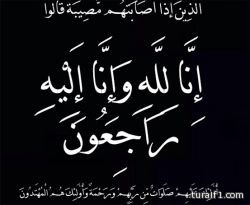 الَّذِينَ إِذَا أَصَابَتْهُم مُّصِيبَةٌ قَالُوا
إِنَّا لِلَّهِ وَإِنَّا إِلَيْهِ
رَاجِعُونَ
أُولَئِكَ عَلَيْهِمْ صَلَوَاتٌ مِّن رَّبِّهِمْ وَرَحْمَةٌ وَأُولَئِكَ هُمُ الْمُهْتَدُونَ
turaif1.com